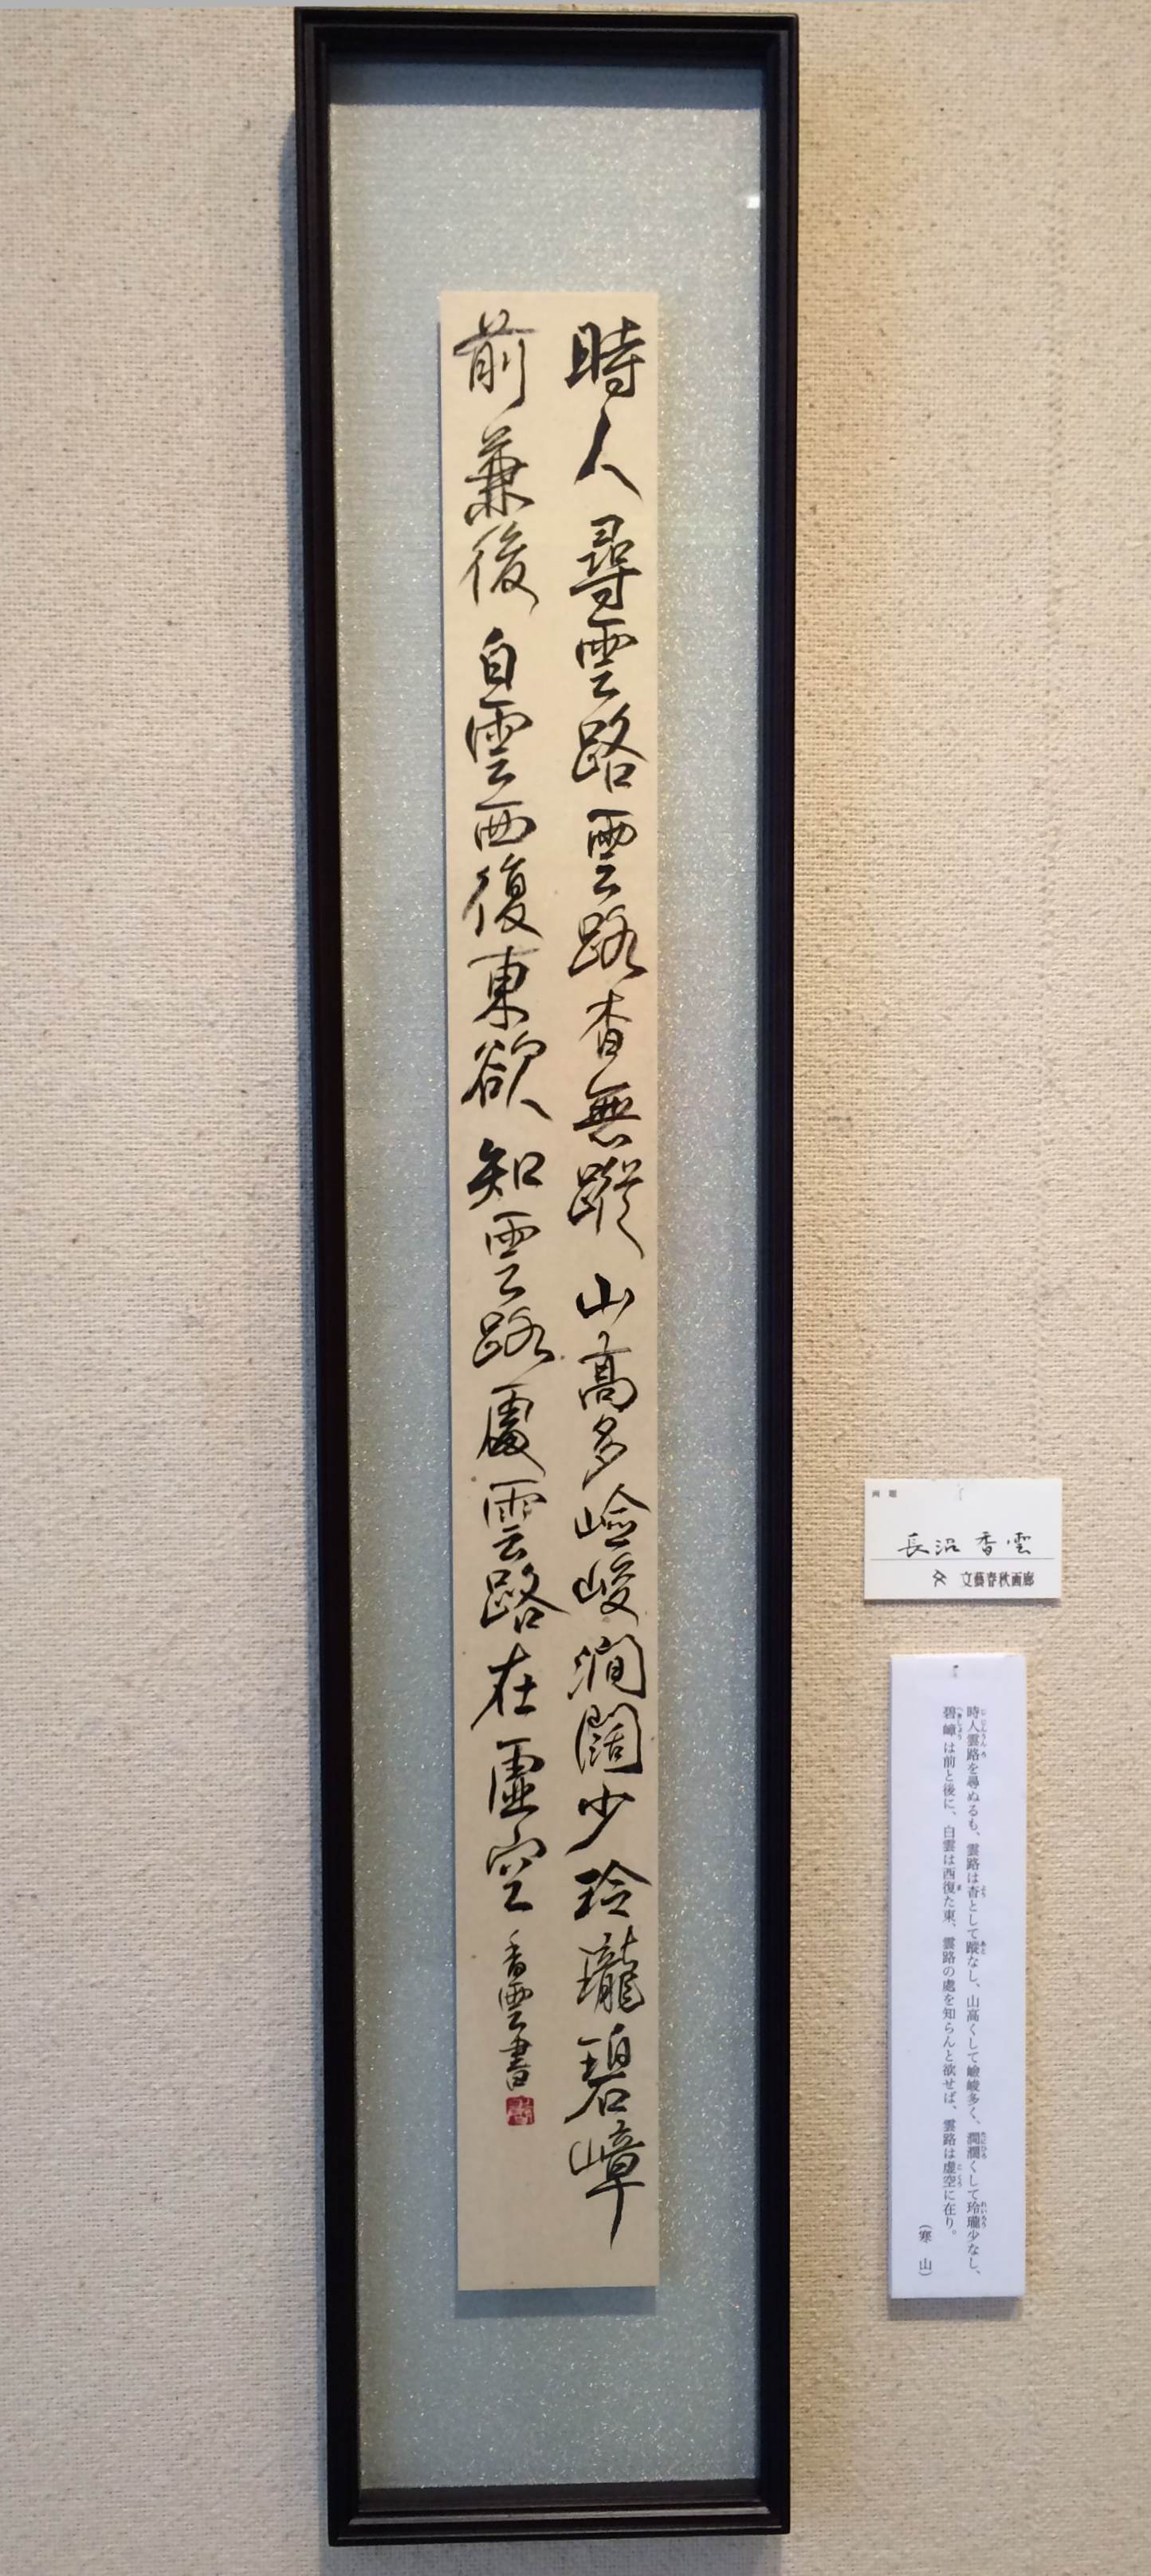 時人尋雲路雲路杳無蹤山高多嶮峻澗闊少玲瓏碧嶂
前兼後白雲西復東欲知雲路處雲路在虛空 香雲書
画 題
長沼 香雲
文藝春秋画廊
時人雲路を尋ぬるも、雲路は杳として蹤なし、山高くして嶮峻多く、澗濶くして玲瓏少なし、
碧嶂は前と後に、白雲は西復た東、雲路の處を知らんと欲せば、雲路は虚空に在り。
（寒 山）